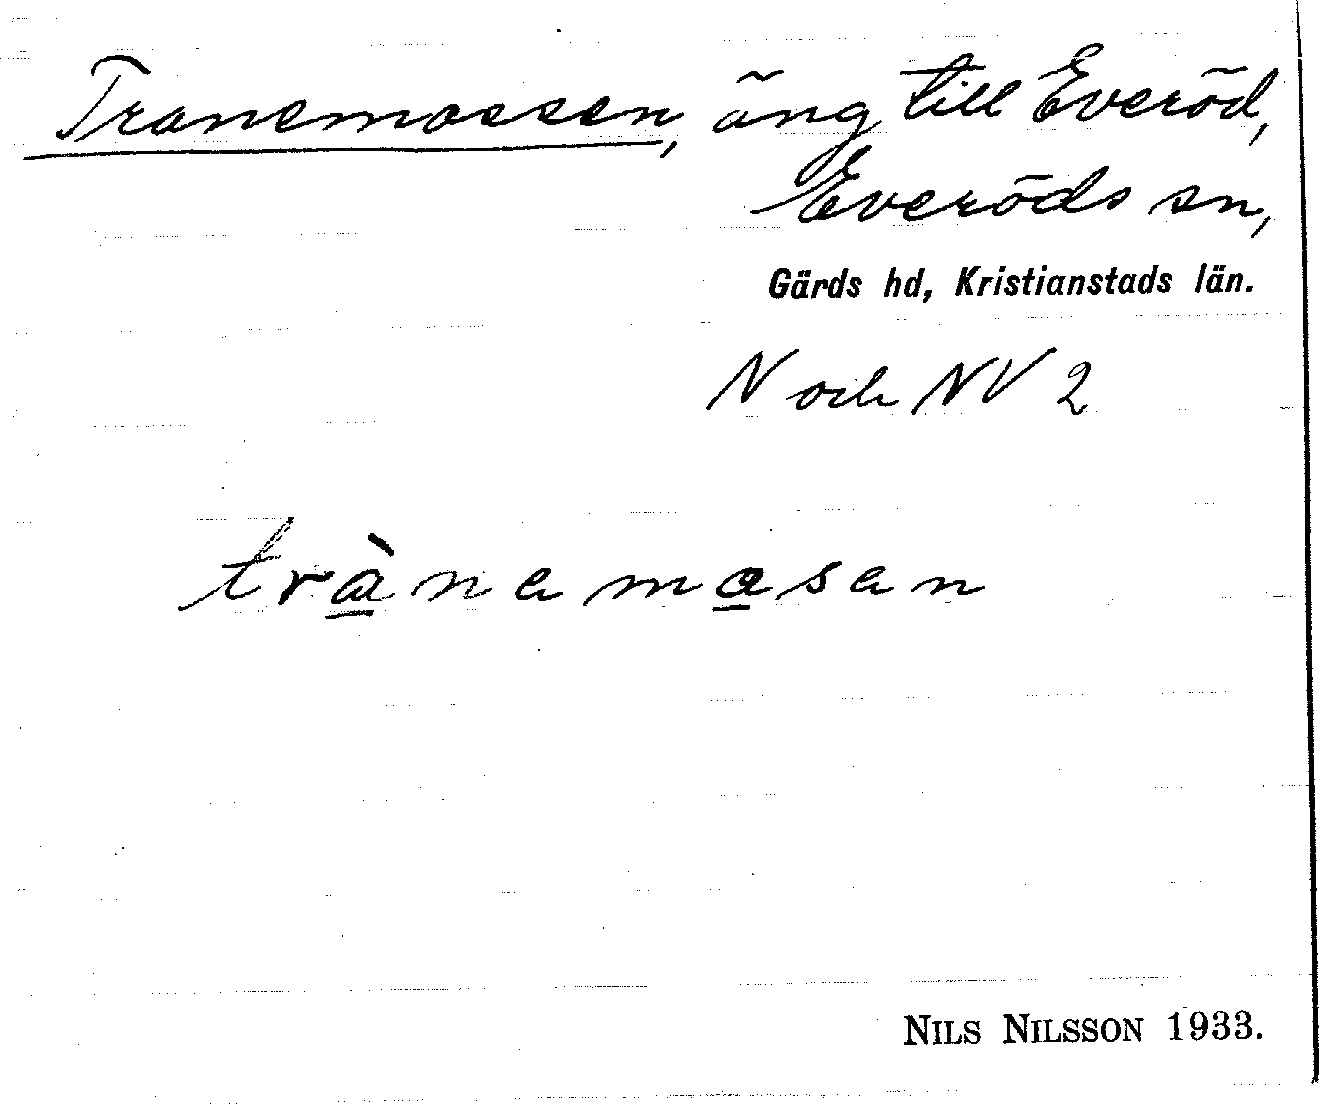 Tranemossen, äng till Everöd,
Everöds sn,
Gärds hd, Kristianstads län.
N och NV 2
trànemosen
NILS NILSSON 1933.